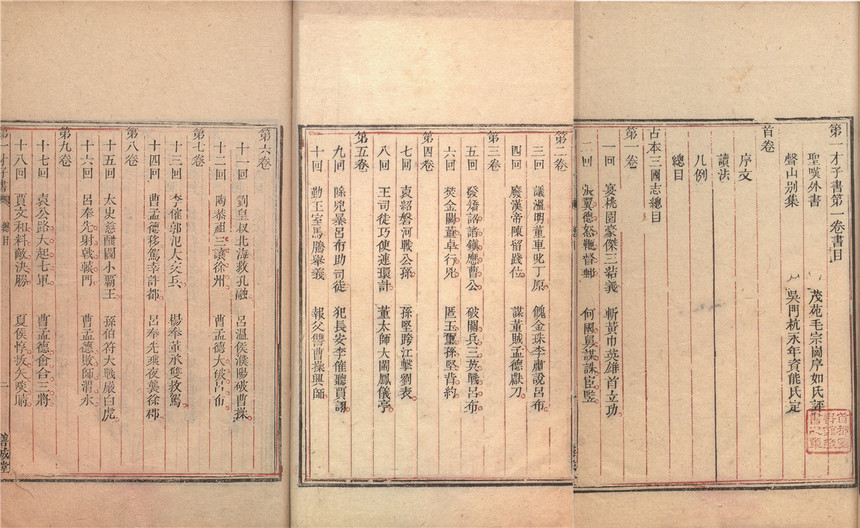 第一才子書第一卷書目
聖嘆外書 茂苑毛宗崗序如氏評
聲山別集 吳門杭永年資能氏定
首卷
序文
讀法
凡例
總目
古本三國志總目
第一卷
一回 宴桃園豪傑三結義 斬黃巾英雄首立功
二回 張翼德怒鞭督郵 何國舅謀誅宦豎
第二卷
三回 議溫明董卓叱丁原 餽金珠李肅說呂布
四回 廢漢帝陳留踐位 謀董賊孟德獻刀
第三卷
五回 發矯詔諸鎮應曹公 破關兵三英戰呂布
六回 焚金闕董卓行兇 匿玉璽孫堅背約
第四卷
七回 袁紹磐河戰公孫 孫堅跨江擊劉表
八回 王司徒巧使連環計 董太師大鬧鳳儀亭
第五卷
九回 除兇暴呂布助司徒 犯長安李傕聽賈詡
十回 勤王室馬騰舉義 報父讐曹操興師
第六卷
十一回 劉皇叔北海救孔融 呂溫侯濮陽破曹操
十二回 陶恭祖三讓徐州 曹孟德大破呂布
第七卷
十三回 李傕郭汜大交兵 楊奉董承雙救駕
十四回 曹孟德移駕幸許都 呂奉先乘夜襲徐郡
第八卷
十五回 太史慈酣鬬小霸王 孫伯符大戰嚴白虎
十六回 呂奉先射戟轅門 曹孟德敗師淯水
第九卷
十七回 袁公路大起七軍 曹孟德會合三將
十八回 賈文和料敵決勝 夏侯惇拔矢啖睛
第一才子書 總目 二 善成堂